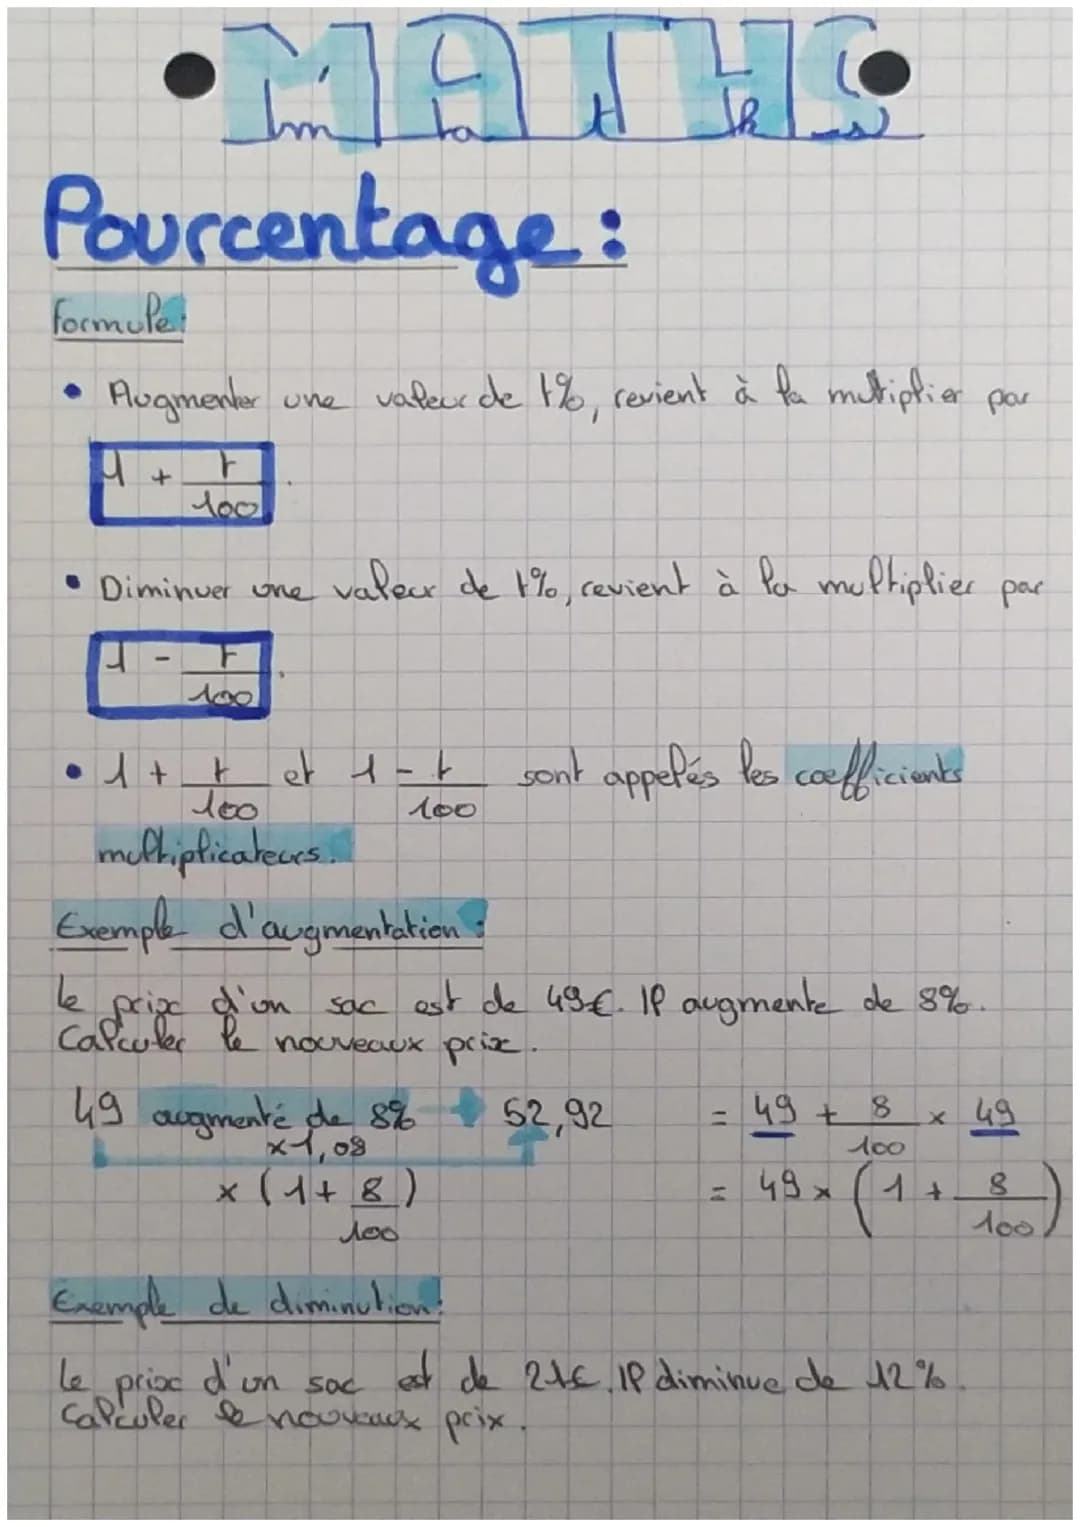 MATHS
m a t h s
Pourcentage :
formule :
• Augmenter une valeur de t%, revient à la mutiplier par
1 + t/100.
• Diminuer une valeur de t%, revient à la multiplier par
1 - t/100.
• 1 + t/100 et 1 - t/100 sont appelés les coefficients
multiplicateurs.
Exemple d'augmentation :
le prix d'un sac est de 49€. Il augmente de 8%.
Calculer le nouveaux prix.
49 augmenté de 8% → 52,92 = 49 + 8/100 × 49
×1,08
× (1 + 8/100) = 49 × (1 + 8/100)
Exemple de diminution :
le prix d'un sac est de 21€. Il diminue de 12%.
Calculer le nouveaux prix.